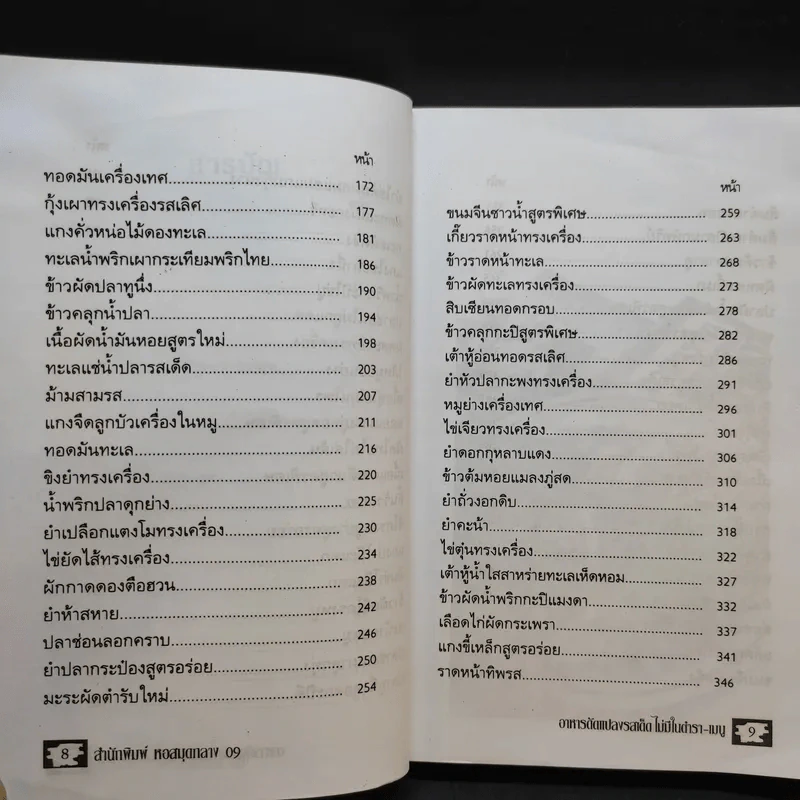 หน้า
ทอดมันเครื่องเทศ.......... 172
กุ้งเผาทรงเครื่องรสเลิศ.......... 177
แกงคั่วหน่อไม้ดองทะเล.......... 181
ทะเลน้ำพริกเผากระเทียมพริกไทย.......... 186
ข้าวผัดปลาทูนึ่ง.......... 190
ข้าวคลุกน้ำปลา.......... 194
เนื้อผัดน้ำมันหอยสูตรใหม่.......... 198
ทะเลแช่น้ำปลารสเด็ด.......... 203
ม้ามสามรส.......... 207
แกงจืดลูกบัวเครื่องในหมู.......... 211
ทอดมันทะเล.......... 216
ขิงยำทรงเครื่อง.......... 220
น้ำพริกปลาดุกย่าง.......... 225
ยำเปลือกแตงโมทรงเครื่อง.......... 230
ไข่ยัดไส้ทรงเครื่อง.......... 234
ผักกาดดองตือฮวน.......... 238
ยำห้าสหาย.......... 242
ปลาช่อนลอกคราบ.......... 246
ยำปลากระป๋องสูตรอร่อย.......... 250
มะระผัดตำรับใหม่.......... 254
8 สำนักพิมพ์ หอสมุดกลาง 09
หน้า
ขนมจีนซาวน้ำสูตรพิเศษ.......... 259
เกี๊ยวราดหน้าทรงเครื่อง.......... 263
ข้าวราดหน้าทะเล.......... 268
ข้าวผัดทะเลทรงเครื่อง.......... 273
สิบเซียนทอดกรอบ.......... 278
ข้าวคลุกกะปิสูตรพิเศษ.......... 282
เต้าหู้อ่อนทอดรสเลิศ.......... 286
ยำหัวปลากะพงทรงเครื่อง.......... 291
หมูย่างเครื่องเทศ.......... 296
ไข่เจียวทรงเครื่อง.......... 301
ยำดอกกุหลาบแดง.......... 306
ข้าวต้มหอยแมลงภู่สด.......... 310
ยำถั่วงอกดิบ.......... 314
ยำคะน้า.......... 318
ไข่ตุ๋นทรงเครื่อง.......... 322
เต้าหู้น้ำใสสาหร่ายทะเลเห็ดหอม.......... 327
ข้าวผัดน้ำพริกกะปิแมงดา.......... 332
เลือดไก่ผัดกระเพรา.......... 337
แกงขี้เหล็กสูตรอร่อย.......... 341
ราดหน้าทิพรส.......... 346
อาหารดัดแปลงรสเด็ด ไม่มีในตำรา-เมนู 9